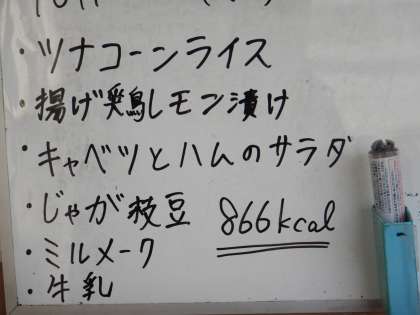 ・ツナコーンライス
・揚げ鶏レモン漬け
・キャベツとハムのサラダ
・じゃが枝豆 866kcal
・ミルメーク
・牛乳